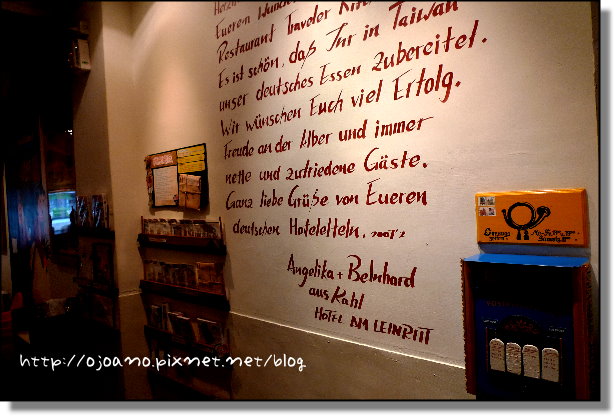 Herzl
Eueren Wunder
Restaurant Traveler
Es ist schön, daß Ihr in Taiwan
unser deutsches Essen zubereitet.
Wir wünschen Euch viel Erfolg.
Freude an der Alber und immer
nette und zufriedene Gäste.
Ganz liebe Grüße von Eueren
deutschen Hoteleltern.
Angelika + Bernhard
aus Kahl
HOTEL AM LEINRITT
http://ojoano.pixnet.net/blog